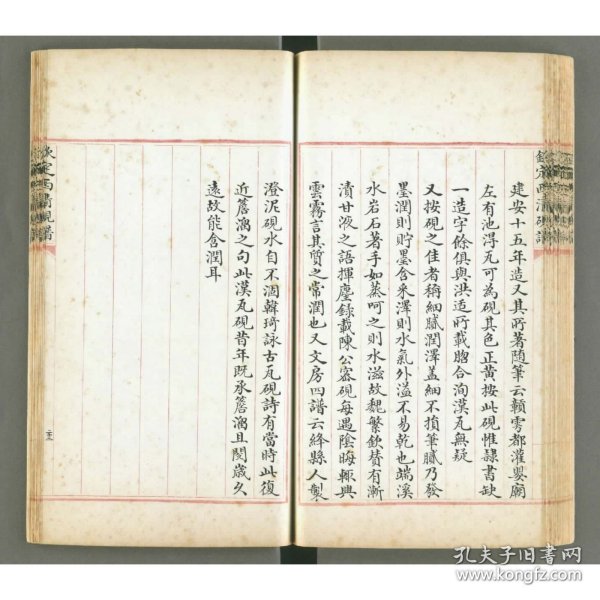 建安十五年造又其所著随筆云贛雩都灌嬰廟
左有池得瓦可為硯其色正黄按此硯惟隷書缺
一造字餘俱與洪适所載脗合洵漢瓦無疑
又按硯之佳者稱細膩潤澤盖細不損筆膩乃發
墨潤則貯墨含采澤則水氣外溢不易乾也端溪
水岩石著手如蒸呵之則水滋故魏繁欽賛有漸
漬甘液之語揮麈録載陳公宻硯每遇陰晦輒興
雲霧言其質之常潤也又文房四譜云絳縣人製
澄泥硯水自不涸韓琦詠古瓦硯詩有當時此復
近簷溜之句此漢瓦硯昔年既承簷溜且閲歳久
遠故能含潤耳
欽定西清硯譜
欽定西清硯譜
孔夫子旧书网
www.kongfz.com